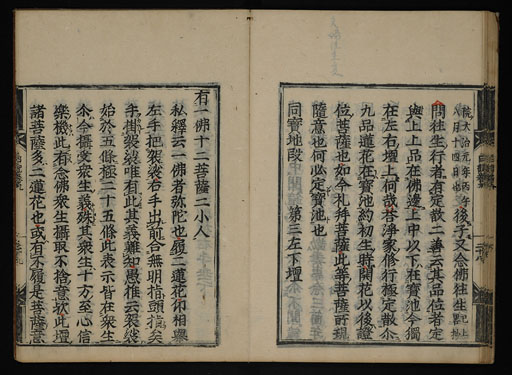 後子又念佛往生
問往生行者有定散二善云其品位者定
與上上品在佛邊上中以下在寶池今獨
在左右壇上何故答淨家修行極定散亦
九品蓮花在寶池約初生時開花以後證
位菩薩也如今礼拜菩薩此等菩薩所現
隨意也何必定寶池也
同寶地段 第三左下壇
有一佛十二菩薩二小人
私釋云一佛者弥陀也履二蓮花仰相與
左手把袈裟右手出前合無明指頭指矣
手掛袈裟唯有此其義難知愚推云袈裟
始於五條極二十五條此表示皆在衆生
余今攝受衆生義殊其衆生十方至心信
樂機此有念佛衆生攝取不捨意歟此壇
諸菩薩多二蓮花也或有不履是菩薩意